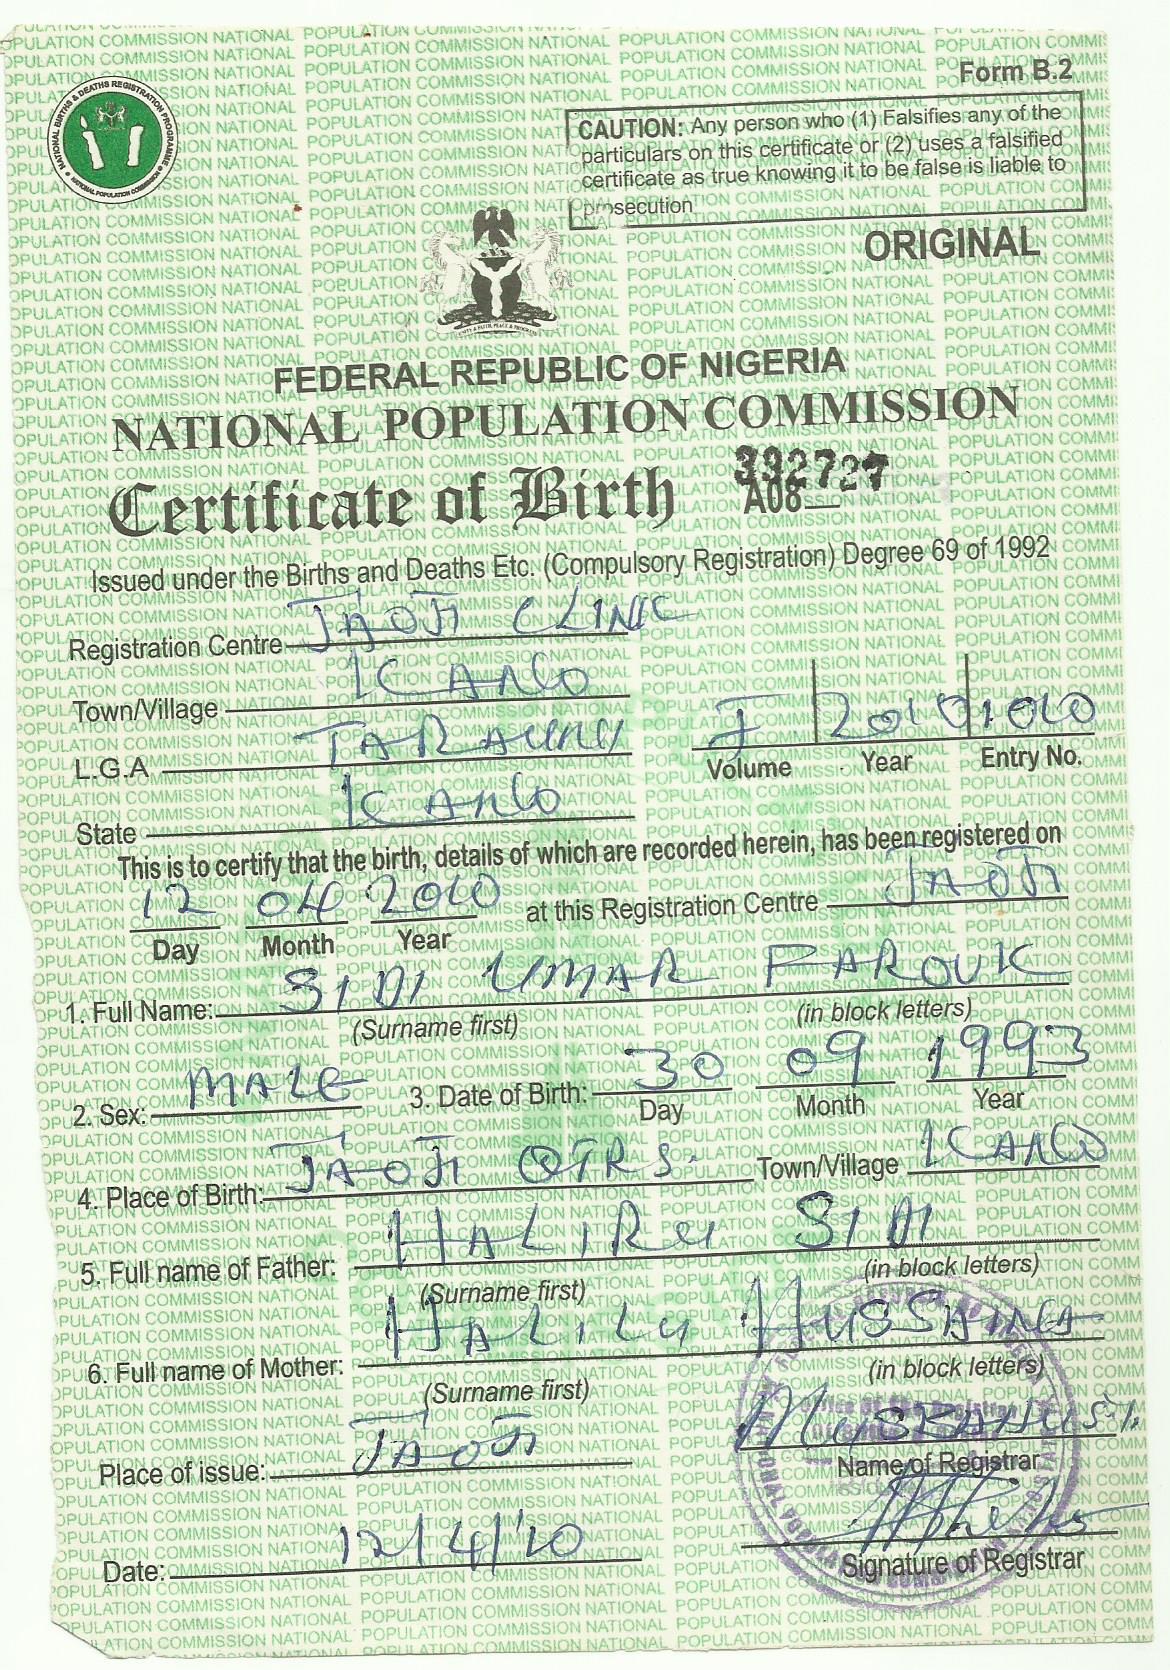 Form B.2
NATIONAL BIRTHS & DEATHS REGISTRATION PROGRAMME
NATIONAL POPULATION COMMISSION
CAUTION: Any person who (1) Falsifies any of the
particulars on this certificate or (2) uses a falsified
certificate as true knowing it to be false is liable to
prosecution
ORIGINAL
UNITY & FAITH, PEACE & PROGRESS
FEDERAL REPUBLIC OF NIGERIA
NATIONAL POPULATION COMMISSION
Certificate of Birth 392727
A08
Issued under the Births and Deaths Etc. (Compulsory Registration) Degree 69 of 1992
Registration Centre JAOJI CLINIC
Town/Village KANO
L.G.A TARAUNI
Volume I Year 2010 Entry No. 1010
State KANO
This is to certify that the birth, details of which are recorded herein, has been registered on
12 04 2010 at this Registration Centre JAOJI
Day Month Year
1. Full Name: SIDI UMAR FAROUK
(Surname first) (in block letters)
2. Sex: MALE 3. Date of Birth: 30 09 1993
Day Month Year
4. Place of Birth: JAOJI QTRS. Town/Village KANO
5. Full name of Father: HALIRU SIDI
(Surname first) (in block letters)
6. Full name of Mother: HALILU HUSSAINA
(Surname first) (in block letters)
Place of issue: JAOJI
Name of Registrar
Date: 12/4/10
Signature of Registrar